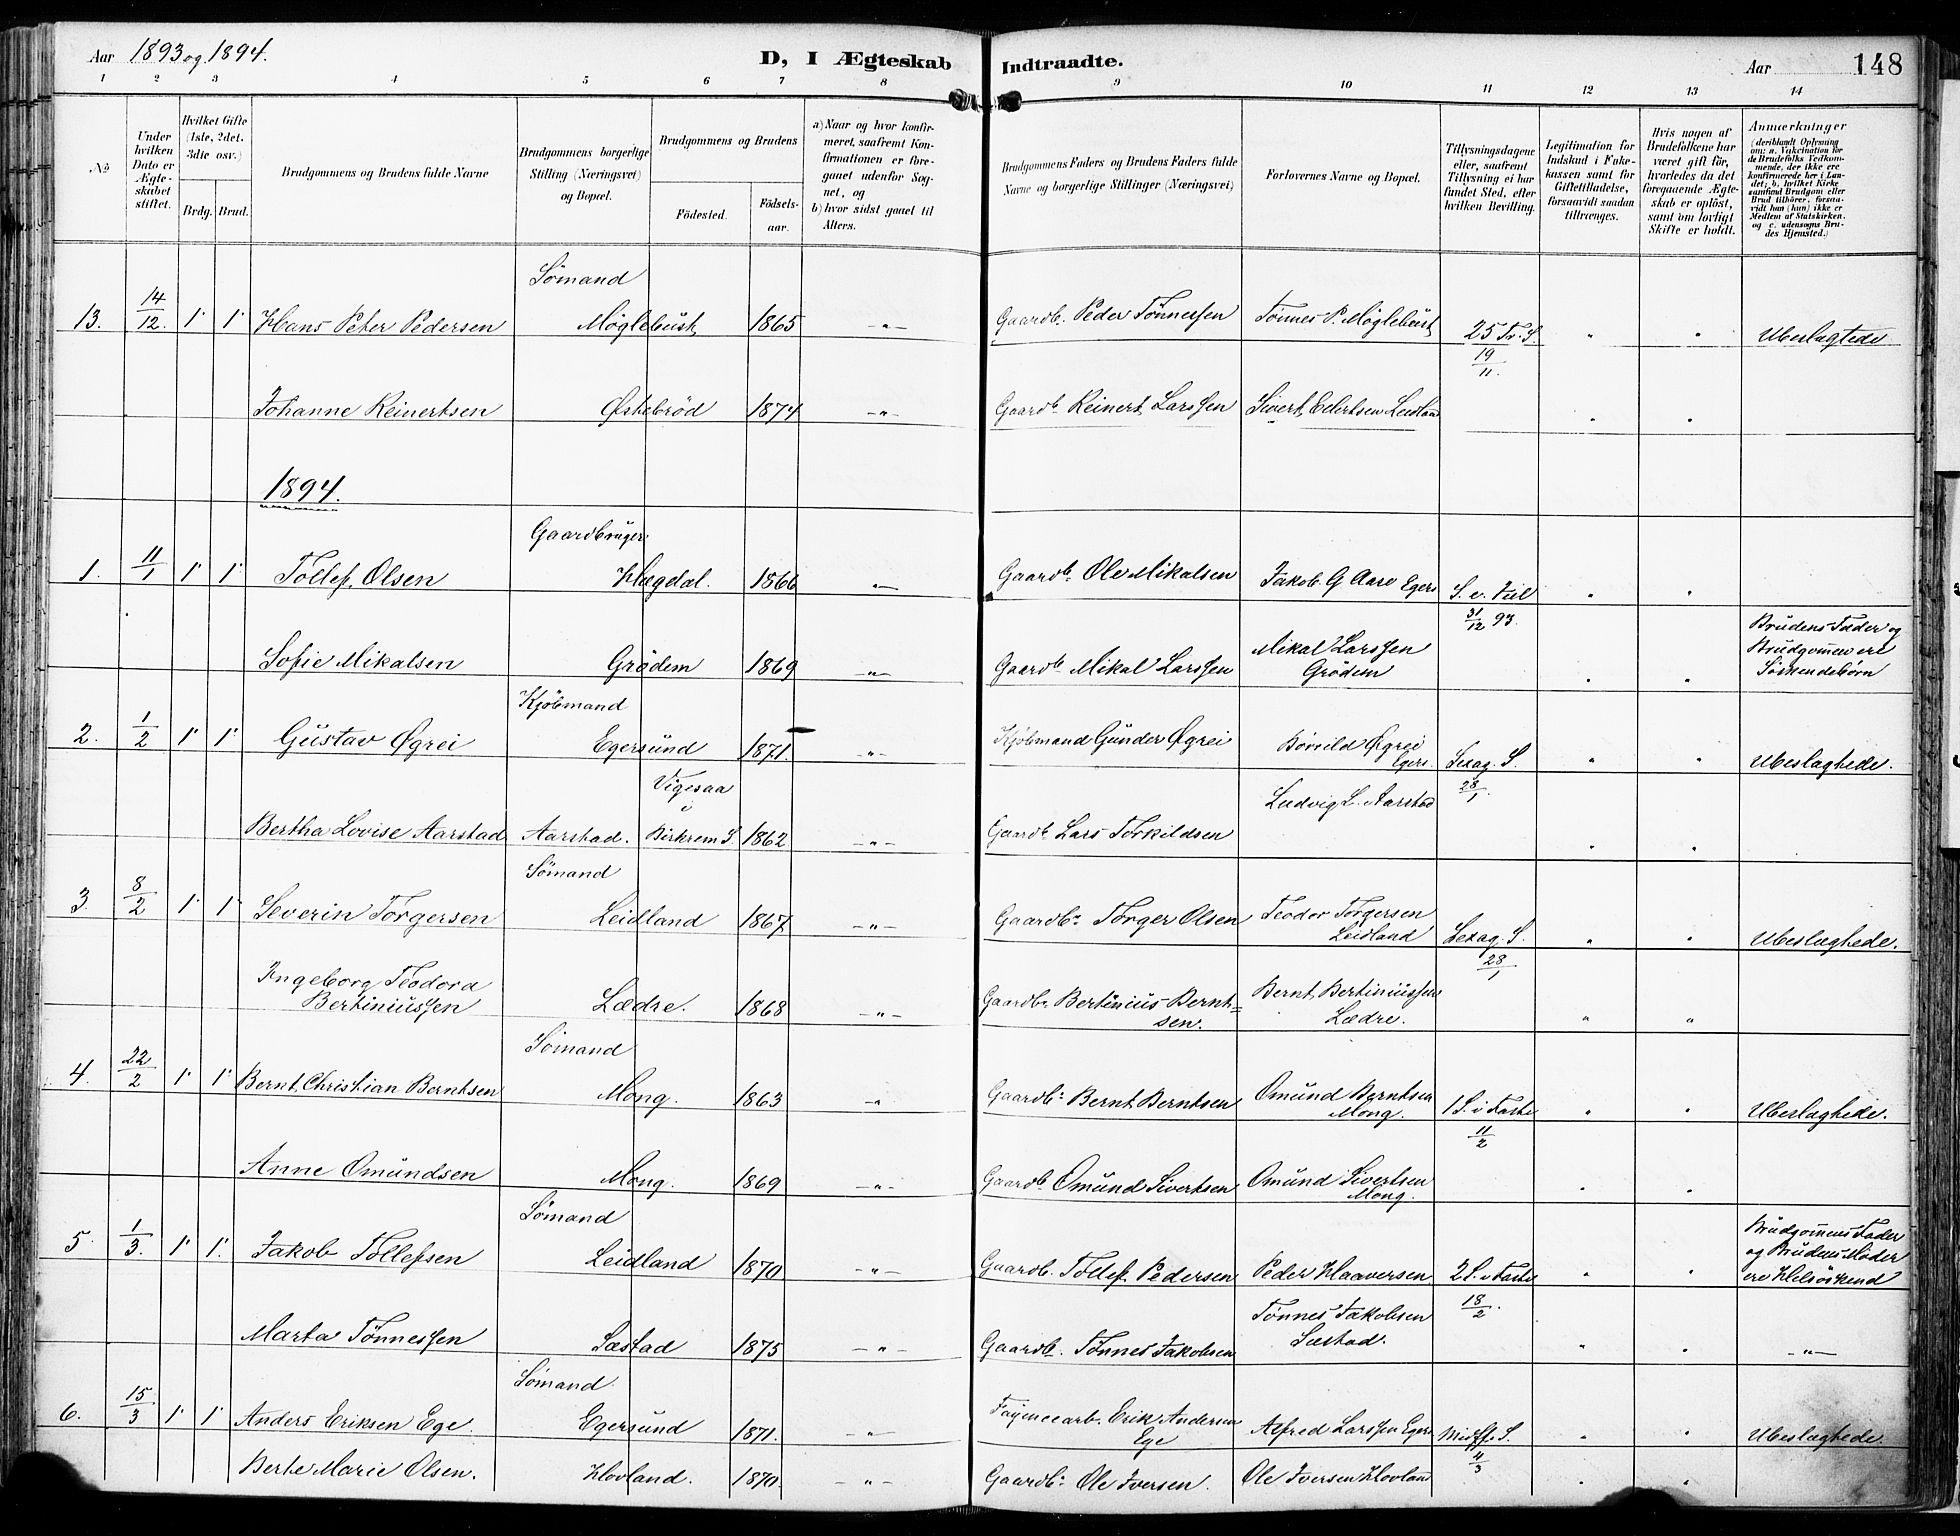 Aar 1893 og 1894.
D, I Ægteskab Indtraadte.
Aar 148
1 2 3 4 5 6 7 8 9 10 11 12 13 14
No
Under hvilken Dato er Ægteskabet stiftet.
Hvilket Gifte (1ste, 2det, 3die osv.)
Brdg. Brud.
Brudgommens og Brudens fulde Navne
Brudgommens borgerlige Stilling (Næringsvei) og Bopæl.
Brudgommens og Brudens
Födested.
Födselsaar.
a) Naar og hvor konfirmeret, saafremt Konfirmationen er foregaaet udenfor Sognet, og
b) hvor sidst gaaet til Alters.
Brudgommens Faders og Brudens Faders fulde Navne og borgerlige Stillinger (Næringsvei)
Forlovernes Navne og Bopæl.
Tillysningsdagene eller, saafremt Tillysning ei har fundet Sted, efter hvilken Bevilling.
Legitimation for Indskud i Enkekassen samt for Giftetilladelse, forsaavidt saadan tiltrænges.
Hvis nogen af Brudefolkene har været gift för, hvorledes da det foregaaende Ægteskab er oplöst, samt om lovligt Skifte er holdt.
Anmærkninger
(deriblandt Oplysning om: a. Vakcination for de Brudefolks Vedkommende, der ikke ere konfirmerede her i Landet; b. hvilket Kirkesamfund Brudgom eller Brud tilhörer, forsaavidt han (hun) ikke er Medlem af Statskirken, og c. udensogns Brudes Hjemsted.)
Sömand
13. 14/12. 1 1 Hans Peter Pedersen Möglebüst 1865 -"- Gaardb. Peder Tönnessen Tönnes P. Möglebüst 25 Tr. S. 19/11. " " Ubeslægtede
Johanne Reinertsen Östebröd 1874 -"- Gaardb. Reinert Larssen Sivert Eilertsen Leidland " "
1894.
Gaardbruger
1. 11/1 1 1 Tollef Olsen Hægdal. 1866 " Gaardb. Ole Mikalsen Jakob G Aase Egers S. e. Jul 31/12 93. " "
Sofie Mikalsen Grödem 1869 -"- Gaardb. Mikal Larssen Mikal Larssen Grödem " " Brudens Fader og Brudgommen ere Söskendebörn
Kjöbmand
2. 1/2 1 1 Gustav Øgrei Egersund 1871. -"- Kjöbmand Gunder Øgrei Börild Øgrei Egers. Sexag. S. 28/1. " " Ubeslægtede.
Bertha Lovise Aarstad Aarstad. Vigesaa i Birkrem S. 1862 -"- Gaardb. Lars Torkildsen Ludvig L. Aarstad " "
Sömand
3. 8/2 1 1 Severin Torgersen Leidland 1867 -"- Gaardb. Torger Olsen Teodor Torgersen Leidland Sexag. S. 28/1 " " Ubeslægtede.
Ingeborg Teodora Bertiniussen Lædre. 1868 -"- Gaardb. Bertinius Berntsen. Bernt Bertiniussen Lædre. " "
Sömand
4. 22/2 1 1 Bernt Christian Berntsen Mong. 1863 -" Gaardb. Bernt Berntsen Omund Berntsen Mong. 1 S. i Faste 11/2 " " Ubeslægtede.
Anne Omundsen Mong. 1869 -"- Gaardb. Omund Sivertsen Omund Sivertsen Mong. " "
Sömand
5. 1/3. 1 1. Jakob Tollefsen Leidland 1870 -"- Gaardb. Tollef Pedersen Peder Haaversen 2 S. i Faste 18/2. " " Brudgommens Fader og Brudens Moder ere Helsöskend
Marta Tönnessen Sæstad 1875 -"- Gaardb. Tönnes Jakobsen Tönnes Jakobsen Sæstad. " " -"-
Sömand
6. 15/3 1 1 Anders Eriksen Ege. Egersund 1871. -"- Fajencearb. Erik Andersen Ege Alfred Larssen Egers Midtf. S. 4/3 " " Ubeslægtede.
Berte Marie Olsen. Hovland. 1870. -"- Gaardb. Ole Iversen. Ole Iversen Hovland " "